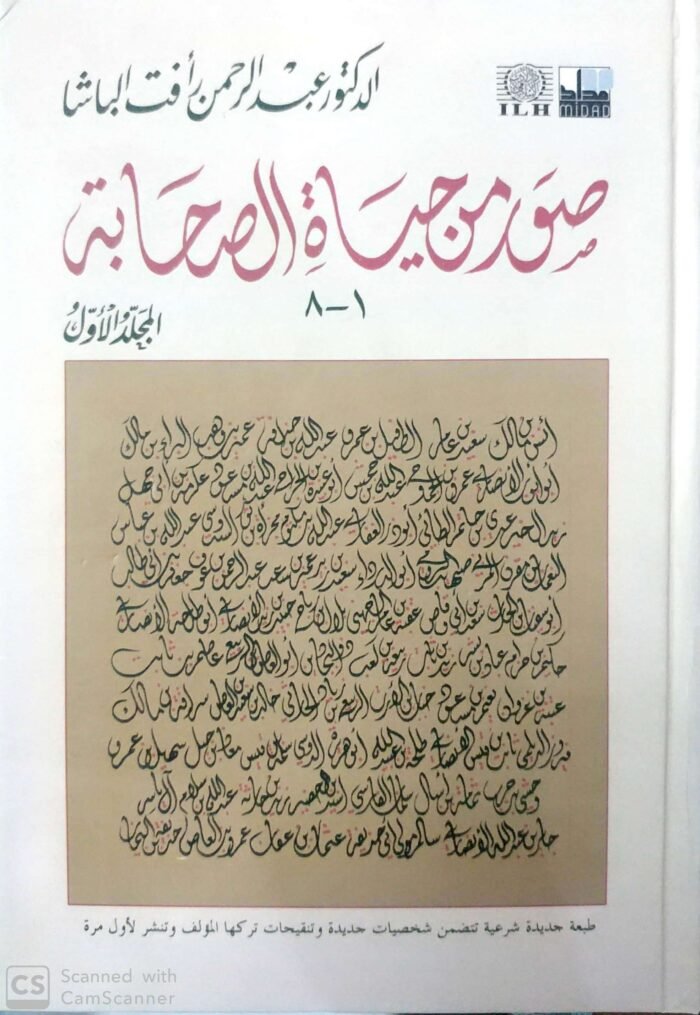 الدكتور عبد الرحمن رأفت الباشا
مداد
MIDAD
ILH
صور من حياة الصحابة
١-٨
المجلد الأول
أنس بن مالك سعيد بن عامر الطفيل بن عمرو عبد الله بن حذافة عمير بن وهب البراء بن مالك
أبو أيوب الأنصاري عمرو بن الجموح عبد الله بن جحش أبو عبيدة بن الجراح عبد الله بن مسعود عكرمة بن أبي جهل
زيد الخير عدي بن حاتم الطائي أبو ذر الغفاري عبد الله بن أم مكتوم مجزأة بن ثور السدوسي عبد الله بن عباس
النعمان بن مقرن المزني صهيب الرومي أبو الدرداء سعيد بن زيد عمير بن سعد عبد الرحمن بن عوف جعفر بن أبي طالب
أبو سفيان بن الحارث سعد بن أبي وقاص عقبة بن عامر الجهني بلال بن رباح حبيب بن زيد الأنصاري أبو طلحة الأنصاري
حكيم بن حزام عباد بن بشر زيد بن ثابت ربيعة بن كعب ذو البجادين أبو العاص بن الربيع عاصم بن ثابت
عتبة بن غزوان نعيم بن مسعود خباب بن الأرت الربيع بن زياد الحارثي خالد بن سعيد بن العاص سراقة بن مالك
فيروز الديلمي ثابت بن قيس الأنصاري طلحة بن عبيد الله أبو هريرة الدوسي سلمة بن قيس معاذ بن جبل سهيل بن عمرو
وحشي بن حرب ثمامة بن أثال سلمان الفارسي أسيد بن الحضير زيد بن حارثة عبد الله بن سلام آل ياسر
جابر بن عبد الله الأنصاري سالم مولى أبي حذيفة عثمان بن عفان عمرو بن العاص حذيفة بن اليمان
طبعة جديدة شرعية تتضمن شخصيات جديدة وتنقيحات تركها المؤلف وتنشر لأول مرة
CS
Scanned with
CamScanner